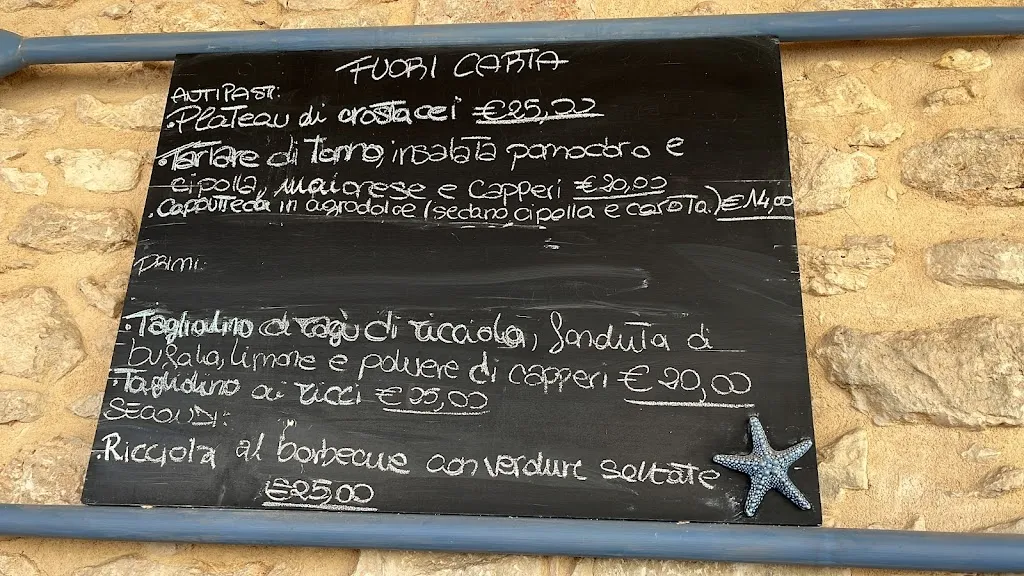 FUORI CARTA
ANTIPASTI:
• Plateau di crostacei €25,22
• Tartare di Tonno, insalata pomodoro e
cipolla, maionese e capperi €20,00
• Capputteda in agrodolce (sedano, cipolla e carota) €14,00
PRIMI
• Tagliolino al ragù di ricciola, fonduta di
bufala, limone e polvere di capperi €20,00
• Tagliolino ai ricci €25,00
SECONDI:
• Ricciola al barbecue con verdure saltate
€25,00